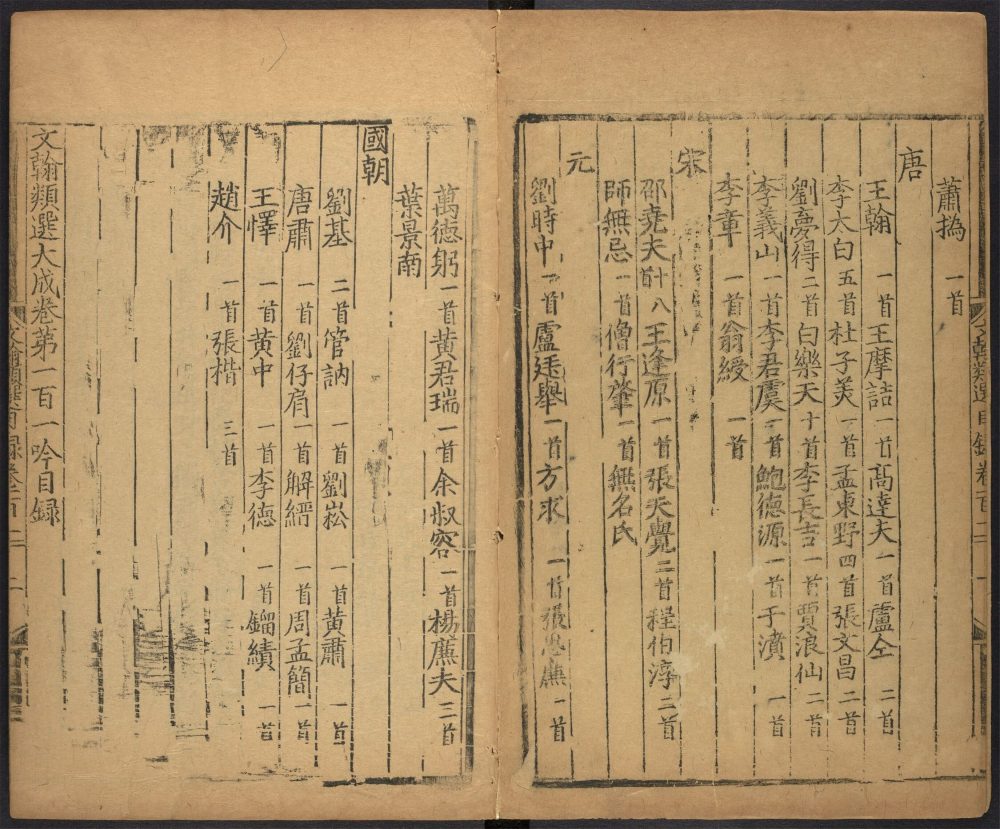 蕭撝 一首
唐
王翰 一首 王摩詰 一首 高達夫 一首 盧仝 二首
李太白 五首 杜子美 一首 孟東野 四首 張文昌 二首
劉夢得 二首 白樂天 十首 李長吉 一首 賈浪仙 二首
李義山 一首 李君虞 一首 鮑德源 一首 于濆 一首
李章 一首 翁綬 一首
宋
邵堯夫 八 王逢原 一首 張天覺 二首 程伯淳 二首
師無忌 一首 僧行肇 一首 無名氏
元
劉時中 一首 盧廷舉 一首 方求 一首 一首
萬德躬 一首 黄君瑞 一首 余叔容 一首 楊廉夫 三首
葉景南
國朝
劉基 二首 管訥 一首 劉崧 一首 黄肅 一首
唐肅 一首 劉仔肩 一首 解縉 一首 周孟簡 一首
王懌 一首 黄中 一首 李德 一首 鎦績 一首
趙介 一首 張楷 三首
文翰類選大成卷第一百一吟目録